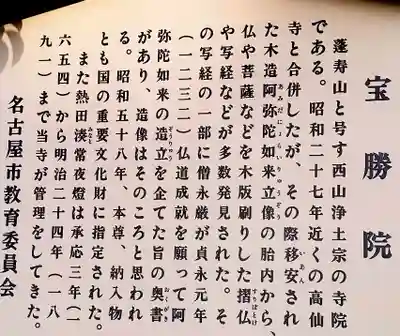 宝勝院
蓬寿山と号す西山浄土宗の寺院
である。昭和二十七年近くの高仙
寺と合併したが、その際移安され
た木造阿弥陀如来立像の胎内から、
仏や菩薩などを木版刷りした摺仏
や写経などが多数発見された。そ
の写経の一部に僧永厳が貞永元年
（一二三二）仏道成就を願って阿
弥陀如来の造立を企てた旨の奥書
があり、造像はそのころと思われ
る。昭和五十八年、本尊、納入物
とも国の重要文化財に指定された。
また熱田湊常夜燈は承応三年（一
六五四）から明治二十四年（一八
九一）まで当寺が管理をしてきた。
名古屋市教育委員会